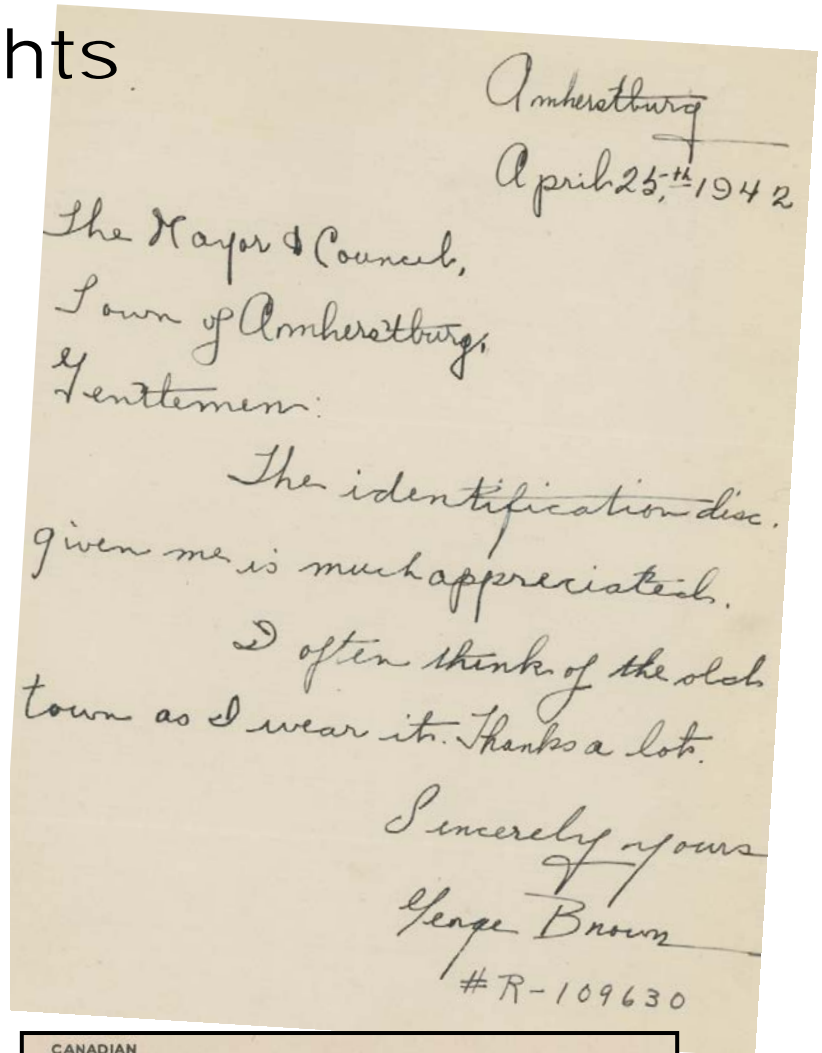 hts
Amherstburg
April 25,th 1942
The Mayor & Council,
Town of Amherstburg,
Gentlemen:
The identification disc.
given me is much appreciated.
I often think of the old
town as I wear it. Thanks a lot.
Sincerely yours
George Brown
# R-109630
CANADIAN